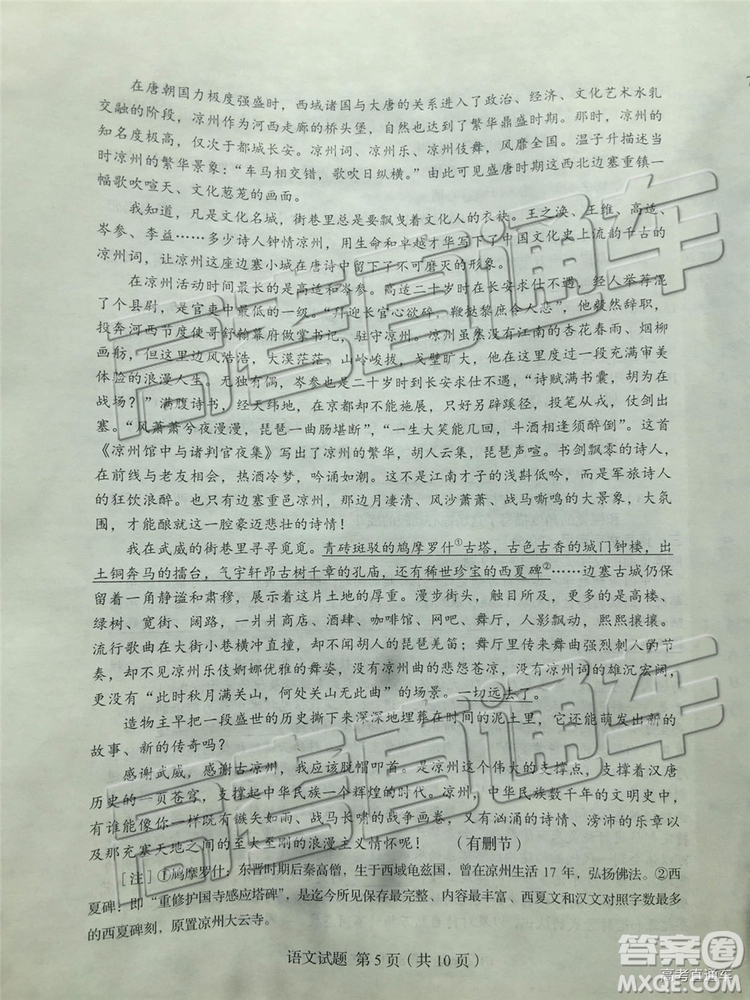 在唐朝国力极度强盛时，西域诸国与大唐的关系进入了政治、经济、文化艺术水乳
交融的阶段，凉州作为河西走廊的桥头堡，自然也与大唐同命运。那时，凉州的
知名度极高，仅次于都城长安。凉州词、凉州乐、凉州伎舞，风靡全国。温子升描述
当时凉州的繁华景象：“车马相交错，歌吹日纵横。”由此可见盛唐时期这西北边塞重镇一
幅歌吹喧天、文化葱茏的画面。
我知道，凡是文化名城，街巷里总是要飘曳着文化人的衣袂。王之涣、王维、高适、
岑参、李益……多少诗人钟情凉州，用生命和卓越才华写下了中国文化史上流韵千古的
凉州词，让凉州这座边塞小城在唐诗中留下了不可磨灭的形象。
在凉州活动时间最长的是高适和岑参。高适二十岁时在长安求仕不遇，经人举荐混
了个县尉，是官吏中最低的一级。“拜迎长官心欲碎，鞭挞黎庶令人悲”，他毅然辞职，
投奔河西节度使哥舒翰幕府做掌书记，驻守凉州。凉州虽然没有江南的杏花春雨、烟柳
画舫，但这里边风浩浩，大漠茫茫。山岭峻拔，戈壁旷大，他在这里度过一段充满审美
体验的浪漫人生。无独有偶，岑参也是二十岁时到长安求仕不遇，“诗赋满书囊，胡为在
战场？”满腹诗书，经天纬地，在京都不能施展，只好另辟蹊径，投笔从戎，仗剑出
塞。“风萧萧兮夜漫漫，琵琶一曲肠堪断”，“一生大笑能几回，斗酒相逢须醉倒”。这首
《凉州馆中与诸判官夜集》写出了凉州的繁华，胡人云集，琵琶声喧。书剑飘零的诗人，
在前线与老友相会，热酒冷梦，吟诵如潮。这不是江南才子的浅斟低吟，而是军旅诗人
的狂饮浪醉。也只有边塞重邑凉州，那边月凄清、风沙萧萧、战马嘶鸣的大景象，大氛
围，才能酿就这一腔豪迈悲壮的诗情！
我在武威的街巷里寻寻觅觅。青砖斑驳的鸠摩罗什①古塔，古色古香的城门钟楼，出
土铜奔马的擂台，气宇轩昂古树千章的孔庙，还有稀世珍宝的西夏碑②……边塞古城仍保
留着一角静谧和肃穆，展示着这片土地的厚重。漫步街头，更多的是高楼、
绿树、宽街、阔路，一片片商店、酒肆、咖啡馆、网吧、舞厅，人影飘动，熙熙攘攘。
流行歌曲在大街小巷横冲直撞，却不闻胡人的琵琶羌笛，舞厅里歌曲强烈刺人的节
奏，却不见凉州乐伎婀娜优雅的舞姿，没有凉州曲的悲怨苍凉，凉州词的雄沉宏阔，
更没有“此时秋月满关山，何处关山无此曲”的情景。一切远去了。
造物主早把一段盛世的历史撕下来深深地埋葬在时间的泥土里，它还能萌发出新的
故事、新的传奇吗？
感谢武威，感谢古凉州，我应该脱帽叩首。是凉州这个伟大的支撑点，支撑着汉唐
历史的一页苍穹，支撑起中华民族一个辉煌的时代。凉州，中华民族数千年的文明史中，
有谁能像你一样既有镞矢如雨、战马长啸的战争画卷，又有汹涌的诗情、滂沛的乐章以
及那充塞天地之间的至大至刚的浪漫主义情怀呢！（有删节）
［注］①鸠摩罗什：东晋时期后秦高僧，生于西域龟兹国，曾在凉州生活 17 年，弘扬佛法。②西
夏碑：即“重修护国寺感应塔碑”，是迄今所见保存最完整、内容最丰富、西夏文和汉文对照字数最多
的西夏碑刻，原置凉州大云寺。
语文试题 第 5 页（共 10 页）
高考直通车
高考直通车
高考直通车
答案圈
MXQE.COM